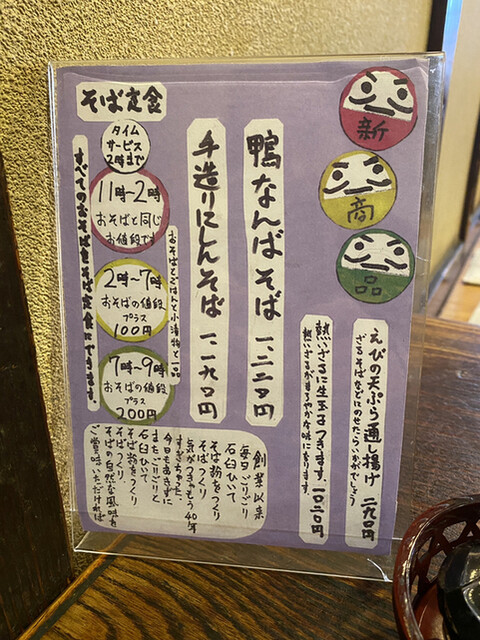 新
商
品
えびの天ぷら 通し揚げ 二九〇円
ざるそばなどにのせたらいかがでしょう
熱いざるに生玉子がつきます。一〇二〇円
熱いざるがまろやかな味になります。
鴨なんばそば 一、二二〇円
手造りにしんそば 一一九〇円
そば定食
タイム
サービス
2時まで
11時〜2時
おそばと同じ
お値段です
2時〜7時
おそばの値段
プラス
100円
7時〜9時
おそばの値段
プラス
200円
おそばとごはんと小漬物と一品
すべてのおそばをそば定食にできます。
創業以来
毎日ごりごり
石臼ひいて
そば粉をつくり
そばつくり
気がつきゃもう40年
すぎちゃった
今日もあきずに
またごりごりと
石臼ひいて
そば粉をつくり
そばつくり
そばの自然な風味を
ご賞味いただければ